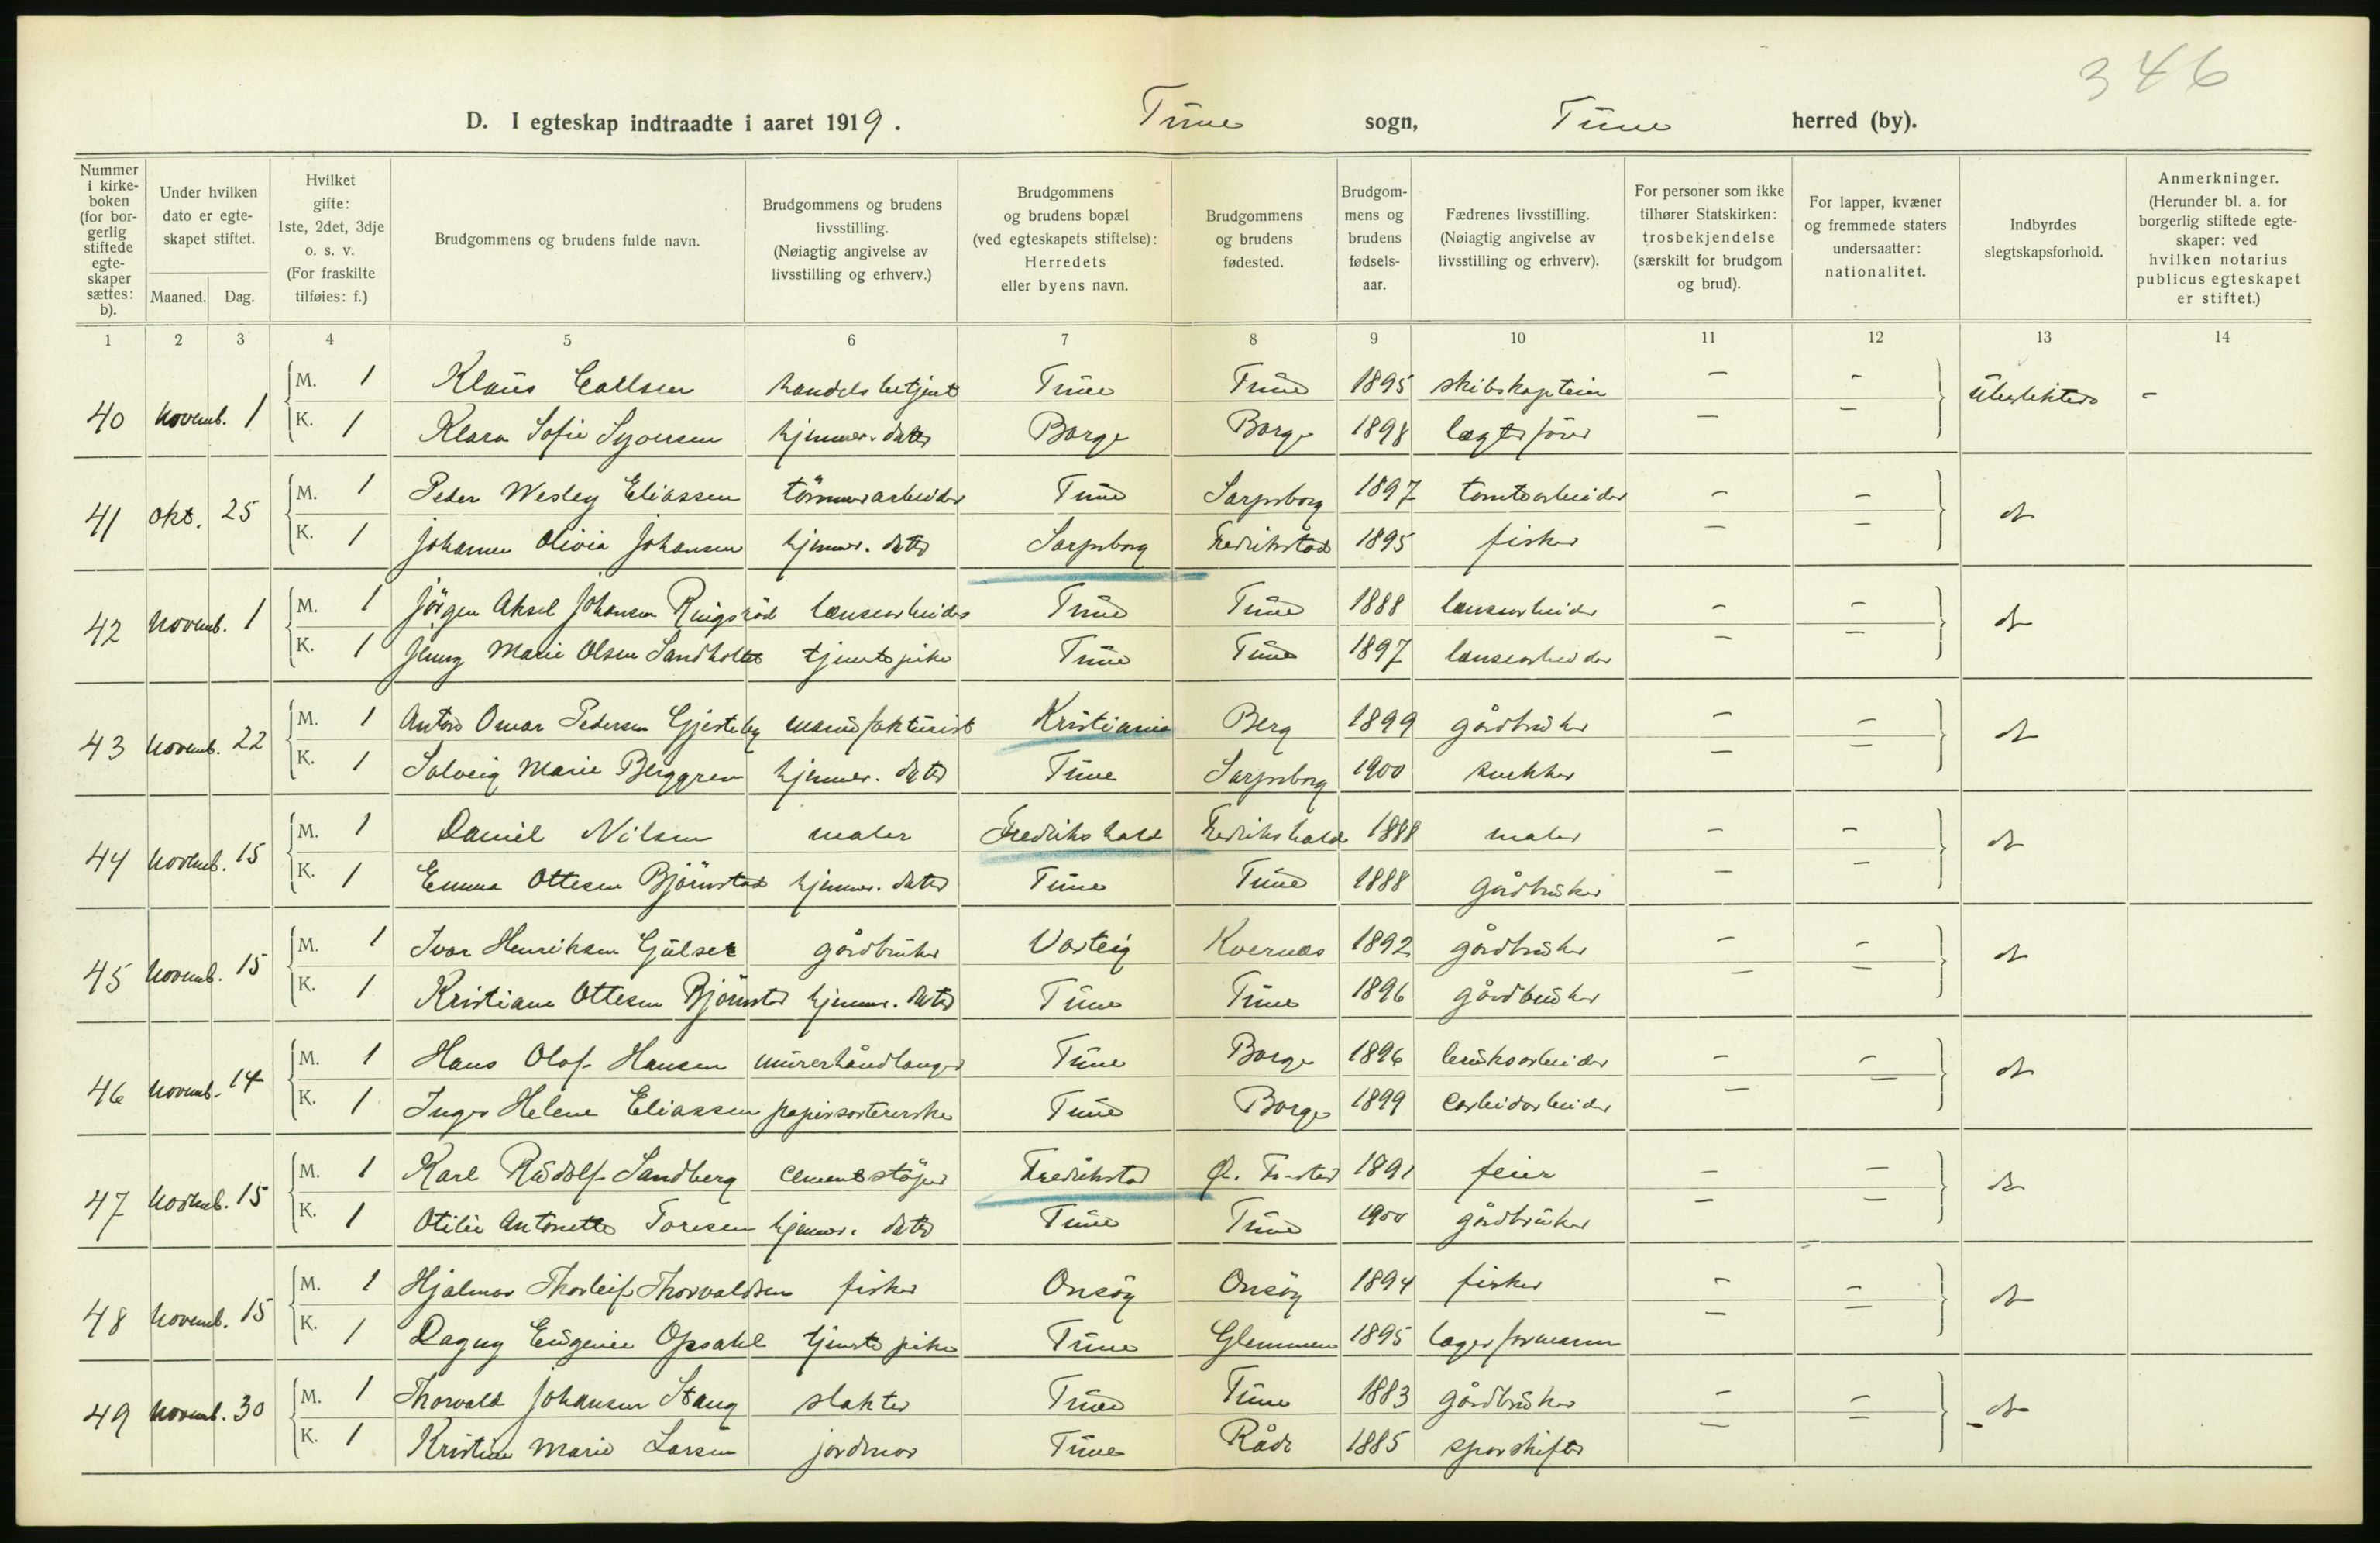 346
D. I egteskap indtraadte i aaret 1919. Tune sogn, Tune herred (by).
Nummer i kirke-boken (for bor-gerlig stiftede egte-skaper sættes: b).
Under hvilken dato er egte-skapet stiftet.
Maaned. Dag.
Hvilket gifte: 1ste, 2det, 3dje o. s. v. (For fraskilte tilføies: f.)
Brudgommens og brudens fulde navn.
Brudgommens og brudens livsstilling. (Nøiagtig angivelse av livsstilling og erhverv.)
Brudgommens og brudens bopæl (ved egteskapets stiftelse): Herredets eller byens navn.
Brudgommens og brudens fødested.
Brudgom-mens og brudens fødsels-aar.
Fædrenes livsstilling. (Nøiagtig angivelse av livsstilling og erhverv).
For personer som ikke tilhører Statskirken: trosbekjendelse (særskilt for brudgom og brud).
For lapper, kvæner og fremmede staters undersaatter: nationalitet.
Indbyrdes slegtskapsforhold.
Anmerkninger. (Herunder bl. a. for borgerlig stiftede egte-skaper: ved hvilken notarius publicus egteskapet er stiftet.)
1 2 3 4 5 6 7 8 9 10 11 12 13 14
M. 1 Klaus Callsen handelsbetjent Tune Tune 1895 skibskaptein - -
40 novemb. 1 ubeslektede -
K. 1 Klara Sofie Syversen hjemmev. datter Borge Borge 1898 - -
M. 1 Peder Wesley Eliassen tömmerarbeider Tune Sarpsborg 1897 tomtearbeider - -
41 okt. 25
K. 1 Johanne Olivia Johansen hjemmev. datter Sarpsborg Fredrikstad 1895 fisker - -
M. 1 Jörgen Aksel Johansen Ringsröd lensearbeider Tune Tune 1888 lensearbeider - -
42 novemb. 1
K. 1 Jenny Marie Olsen Sandholtet tjenestepike Tune Tune 1897 lensearbeider - -
M. 1 Anton Omar Pedersen Gjesteby manufakturist Kristiania Berg 1899 gårdbruker - -
43 novemb. 22
K. 1 Solveig Marie Berggren hjemmev. datter Tune Sarpsborg 1900 snekker - -
M. 1 Daniel Nilsen maler Fredrikshald Fredrikshald 1888 maler - -
44 novemb. 15
K. 1 Emma Ottesen Björnstad hjemmev. datter Tune Tune 1888 gårdbruker - -
M. 1 Ivar Henriksen Gulset gårdbruker Varteig Kvernes 1892 gårdbruker - -
45 novemb. 15
K. 1 Kristiane Ottesen Björnstad hjemmev. datter Tune Tune 1896 gårdbruker - -
M. 1 Hans Olof Hansen murerhåndlanger Tune Borge 1896 bruksarbeider - -
46 novemb. 14
K. 1 Inger Helene Eliassen papirsortererske Tune Borge 1899 carbidarbeider - -
M. 1 Karl Rudolf Sandberg cementstöper Fredrikstad 1891 feier - -
47 novemb. 15
K. 1 Otilie Antonette Toresen hjemmev. datter Tune Tune 1900 gårdbruker - -
M. 1 Hjalmar Thorleif Thorvaldsen fisker Onsöy Onsöy 1894 fisker - -
48 novemb. 15
K. 1 Dagny Eugenie Opsahl tjenestepike Tune Glemmen 1895 lagerformann - -
M. 1 Thorvald Johansen Stang slakter Tune Tune 1883 gårdbruker - -
49 novemb. 30
K. 1 Kristine Marie Larsen jordmor Tune Råde 1885 sporskifter - -